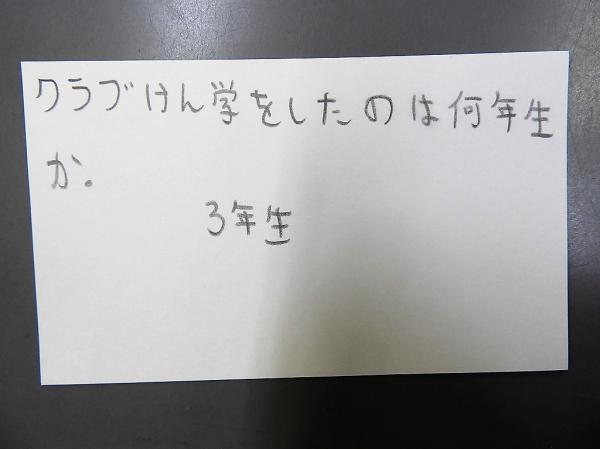 クラブけん学をしたのは何年生
か。
3年生